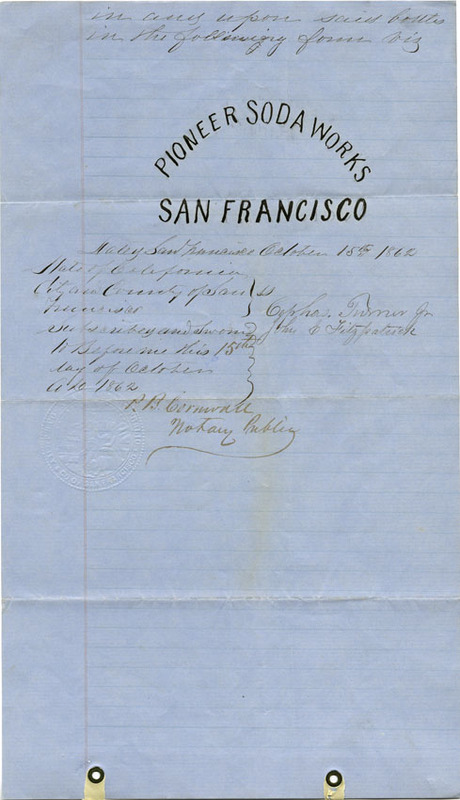 in any upon said bottles
in the following form viz
PIONEER SODA WORKS
SAN FRANCISCO
Dated San Francisco October 15th 1862
State of California
City and County of San
Francisco
Subscribed and Sworn
to Before me this 15th
day of October
A.D. 1862
Cephas Turner Jr
Jno C Fitzpatrick
P. B. Cornwall
Notary Public